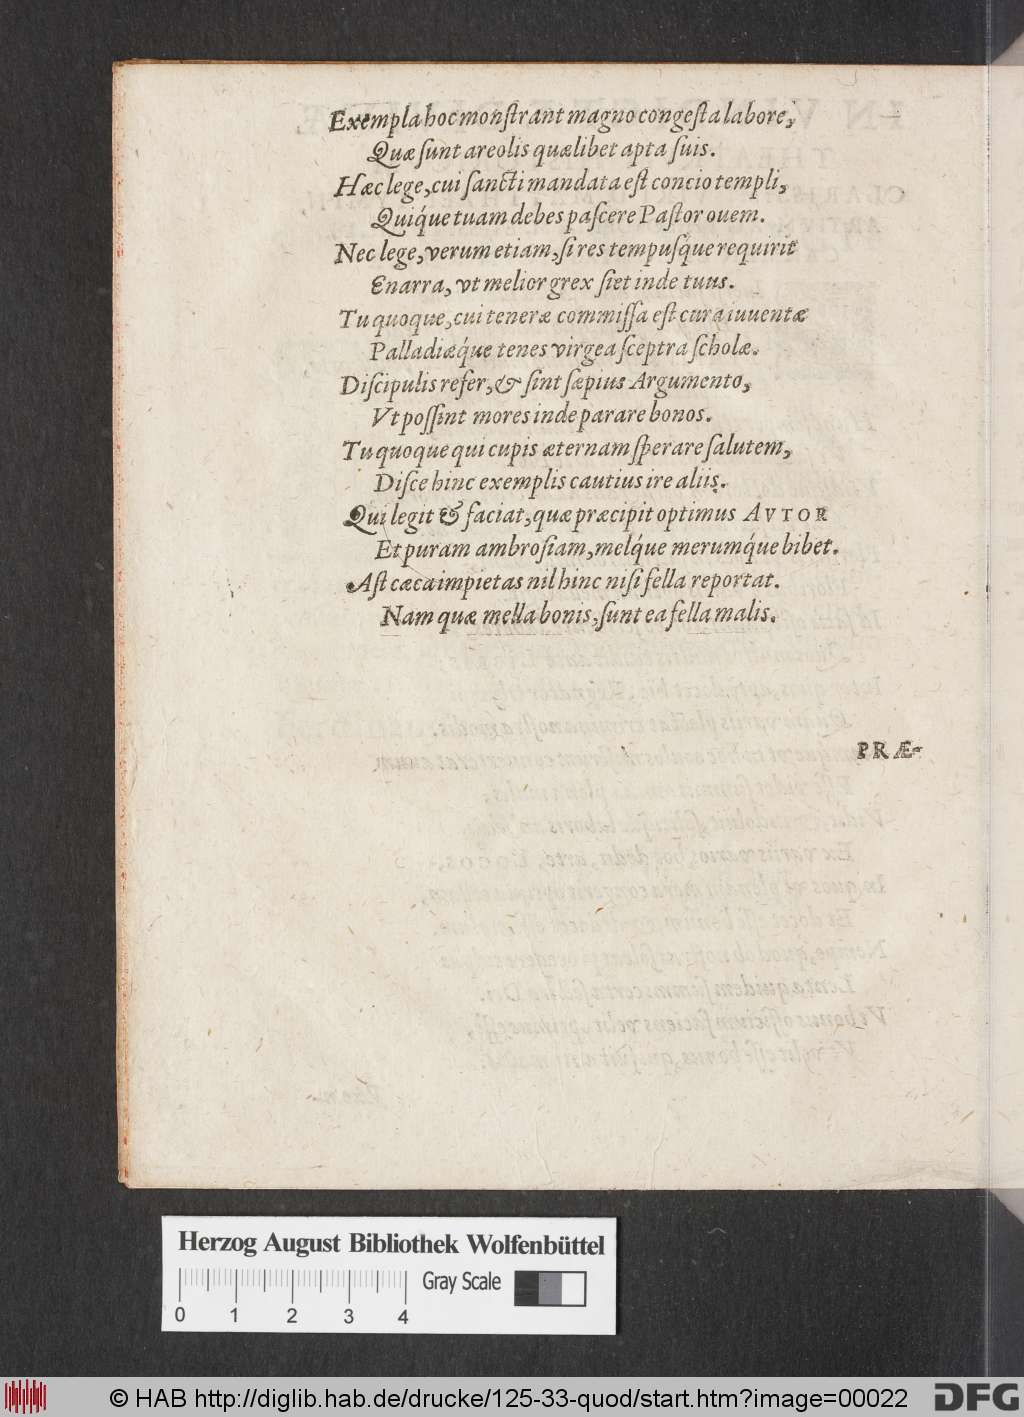 Exempla hoc monſtrant magno congeſta labore,
Quæ ſunt areolis quælibet apta ſuis.
Hæc lege, cui ſancti mandata eſt concio templi,
Quiq́ue tuam debes paſcere Paſtor ouem.
Nec lege, verum etiam, ſi res tempuſq́ue requirit
Enarra, vt melior grex ſiet inde tuus.
Tu quoque, cui teneræ commiſſa eſt cura iuuentæ
Palladiæq́ue tenes virgea ſceptra ſcholæ.
Diſcipulis refer, & ſint ſæpius Argumento,
Vt poſſint mores inde parare bonos.
Tu quoque qui cupis æternam ſperare ſalutem,
Diſce hinc exemplis cautius ire aliis.
Qui legit & faciat, quæ præcipit optimus AVTOR
Et puram ambroſiam, melq́ue merumq́ue bibet.
Aſt cæca impietas nil hinc niſi fella reportat.
Nam quæ mella bonis, ſunt ea fella malis.
PRÆ-
Herzog August Bibliothek Wolfenbüttel
Gray Scale
0 1 2 3 4
© HAB http://diglib.hab.de/drucke/125-33-quod/start.htm?image=00022
DFG